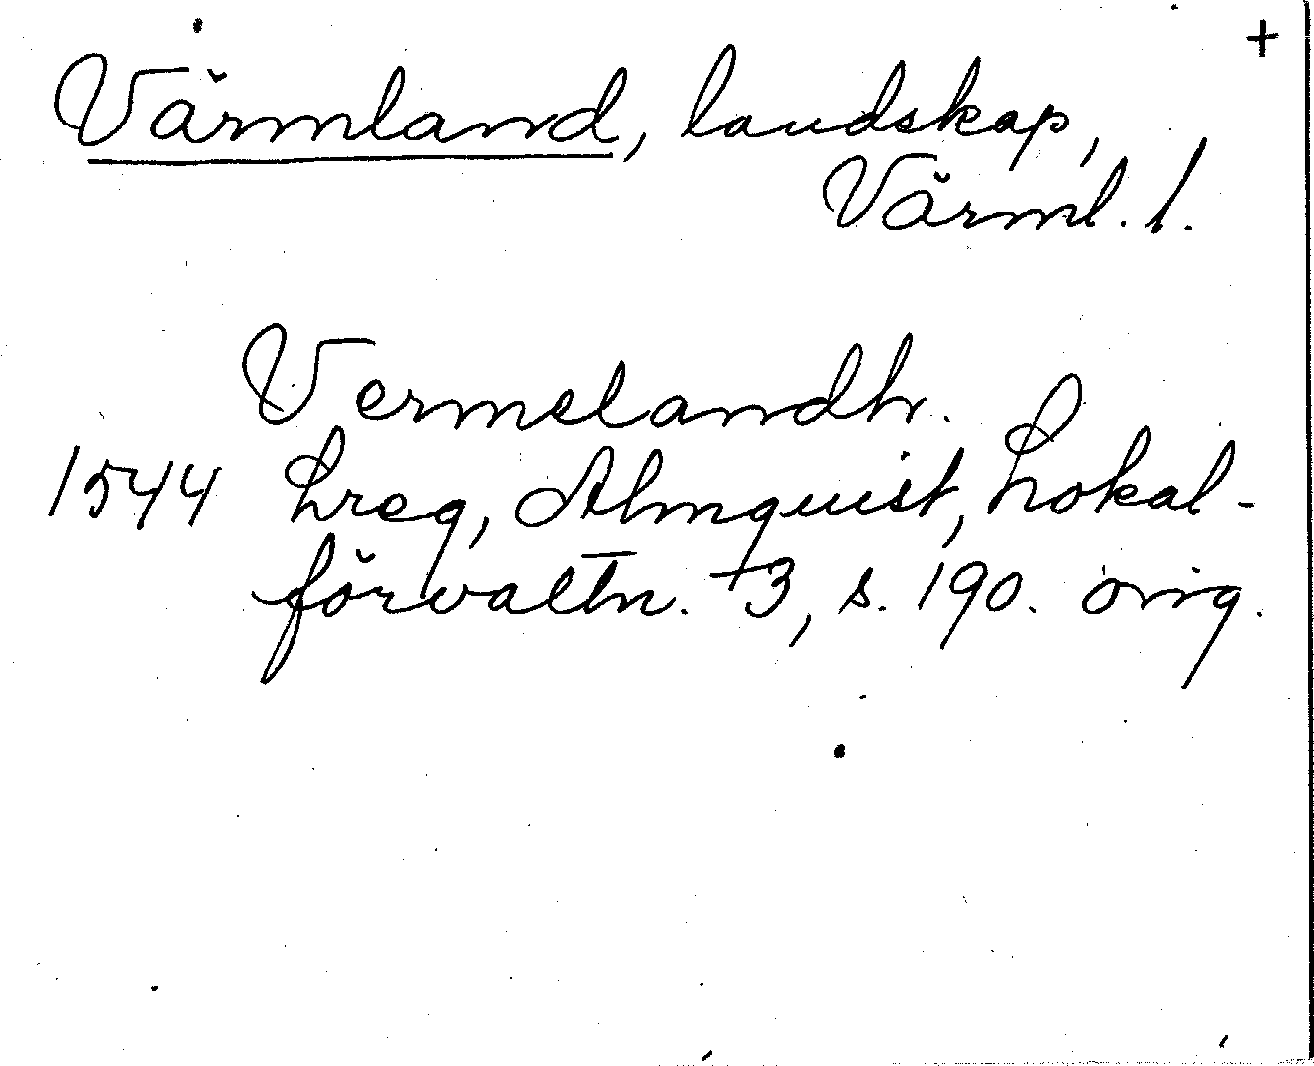 +
Värmland, landskap,
Värml. l.
Vermelandh.
1544 hreg, Almquist, Lokal-
förvaltn. 3, s. 190. orig.